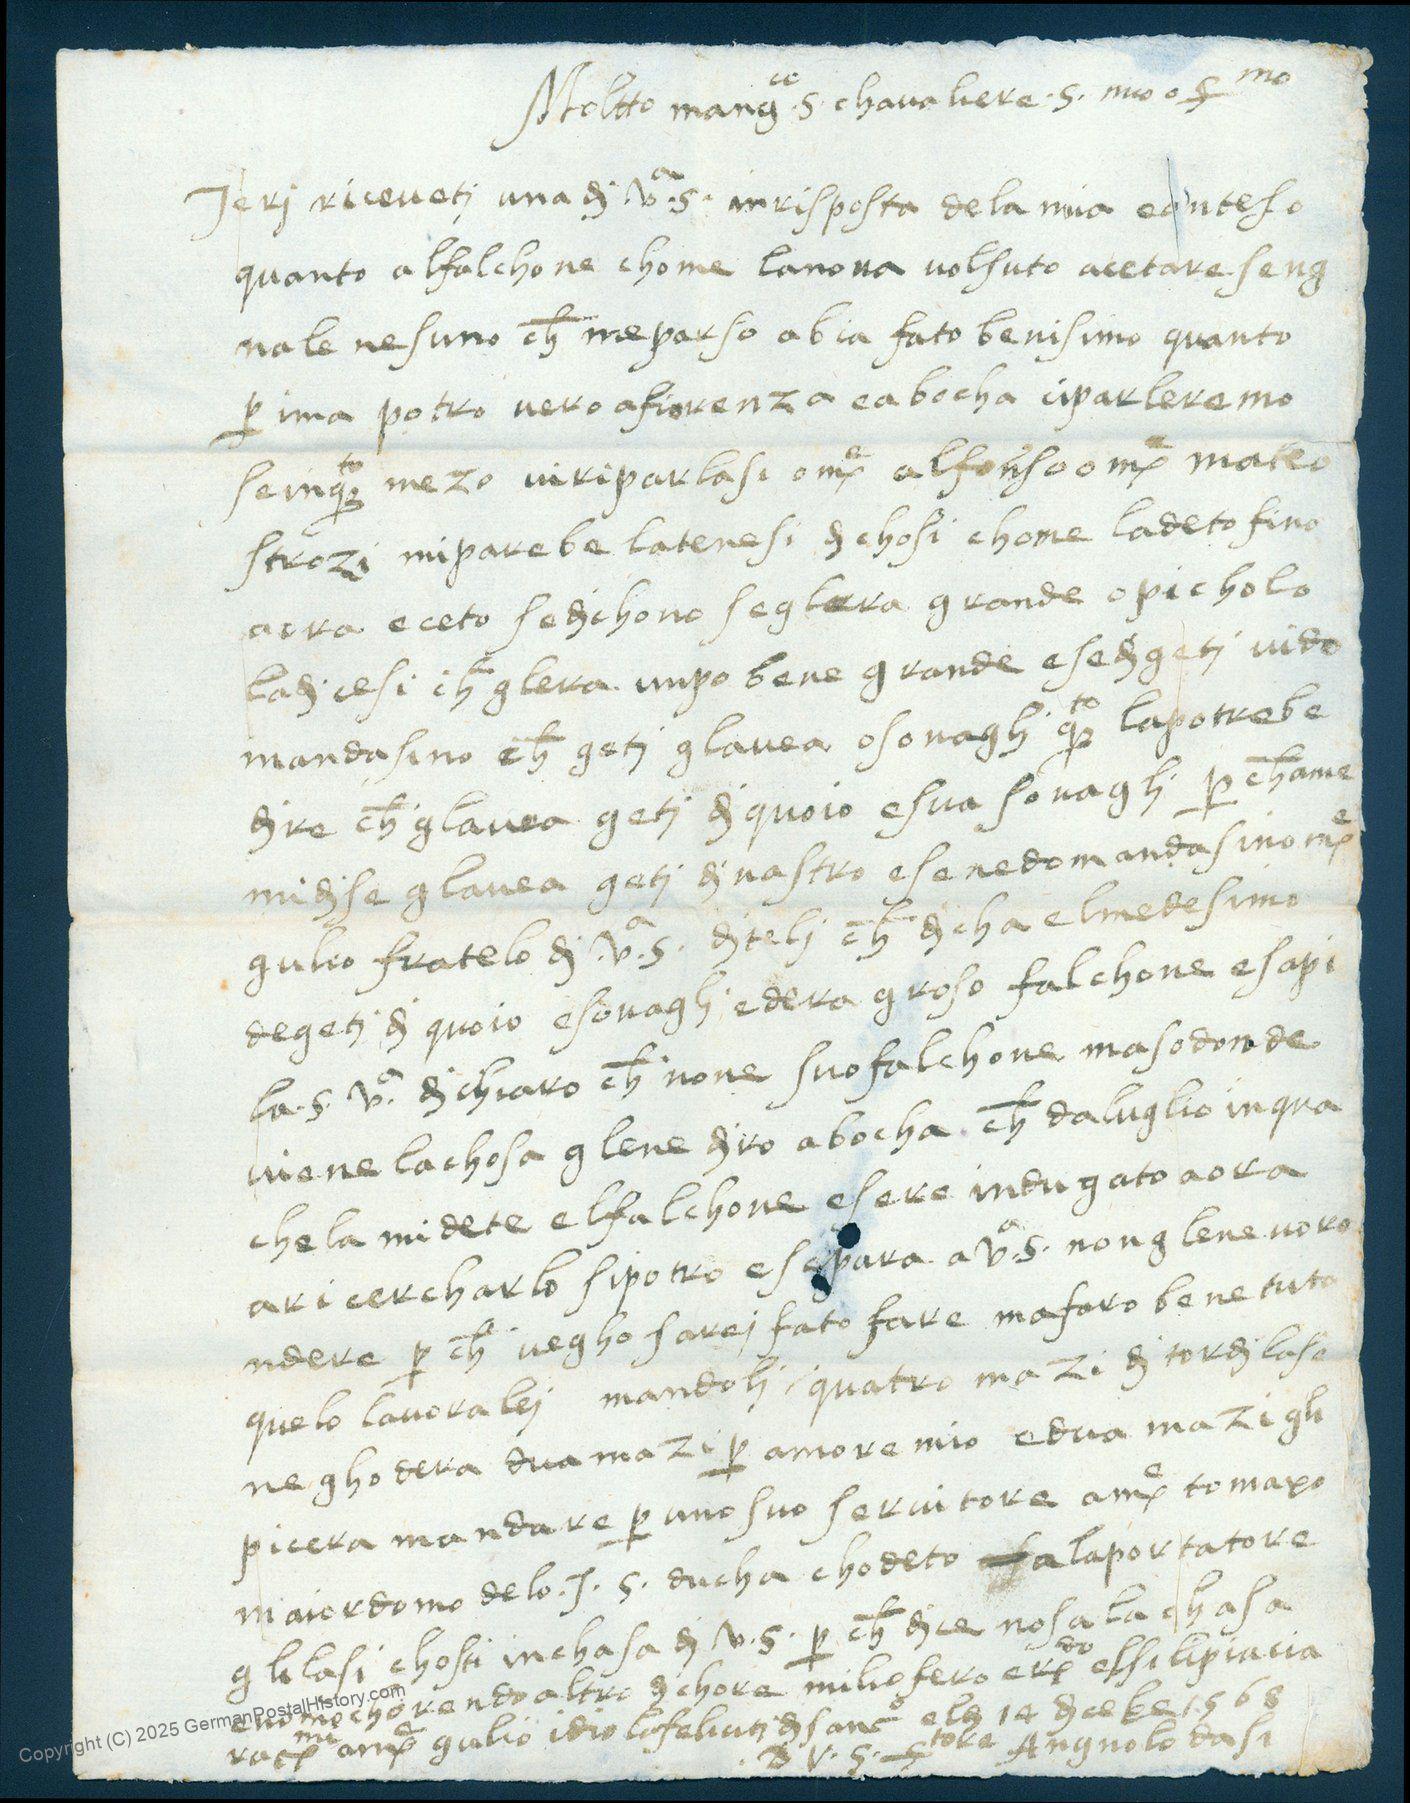 Moltto mangce .S. chavaliere .S. mio osmo
Ierj ricevetj una dj va .S. in risposta dela mia e inteso
quanto alfalchone chome lanona volsuto acetare seng
nale nesuno ch meparso abia fato benisimo quanto
pima potro vero afiorenza eabocha ciparleremo
sein qto mezo viriparlasi omre alfonso omre mateo
strozi miparebe latenesi dj chosi chome ladeto fino
aora eceto sedjchono seglera grande opicholo
ladjcesi ch glera unpo bene grande esedj getj vido
mandasino ch getj glavea osonaglj qto lapotrebe
djre ch glavea getj dj quoio esua sonaglj p chame
midjse glavea getj dj nastro esenedomandasino mre
gulio fratelo dj va .S. djtelj ch djcha elmedesimo
degetj dj quoio esonaglj edera groso falchone esapi
la .S. va. djchiaro ch none suo falchone masodonde
viene lachosa glene djro abocha ch daluglio inqua
chela midete elfalchone esere indugato aora
aricercharlo sipotro esepara a va .S. nonglene voro
ndere p ch vegho sarej fato fare mafaro bene tuto
quelo lavoralej mandolj quatro mazi dj tordj laso
neghodera dua mazi p amore mio edua mazi gli
picera mandare p uno suo servitore amre tomaxo
maiordomo delo .I. S. ducha chodeto alaportatore
glilasi chosti inchasa dj v.S. p ch djce nosa la chasa
enome chorendo altro djchore miliofero erdo essilipiacia
racmi amre gulio idio lofelicitj dj sano eldj 14 djcebe 1568
D V.S. store Angnolo dasi
Copyright (C) 2025 GermanPostalHistory.com